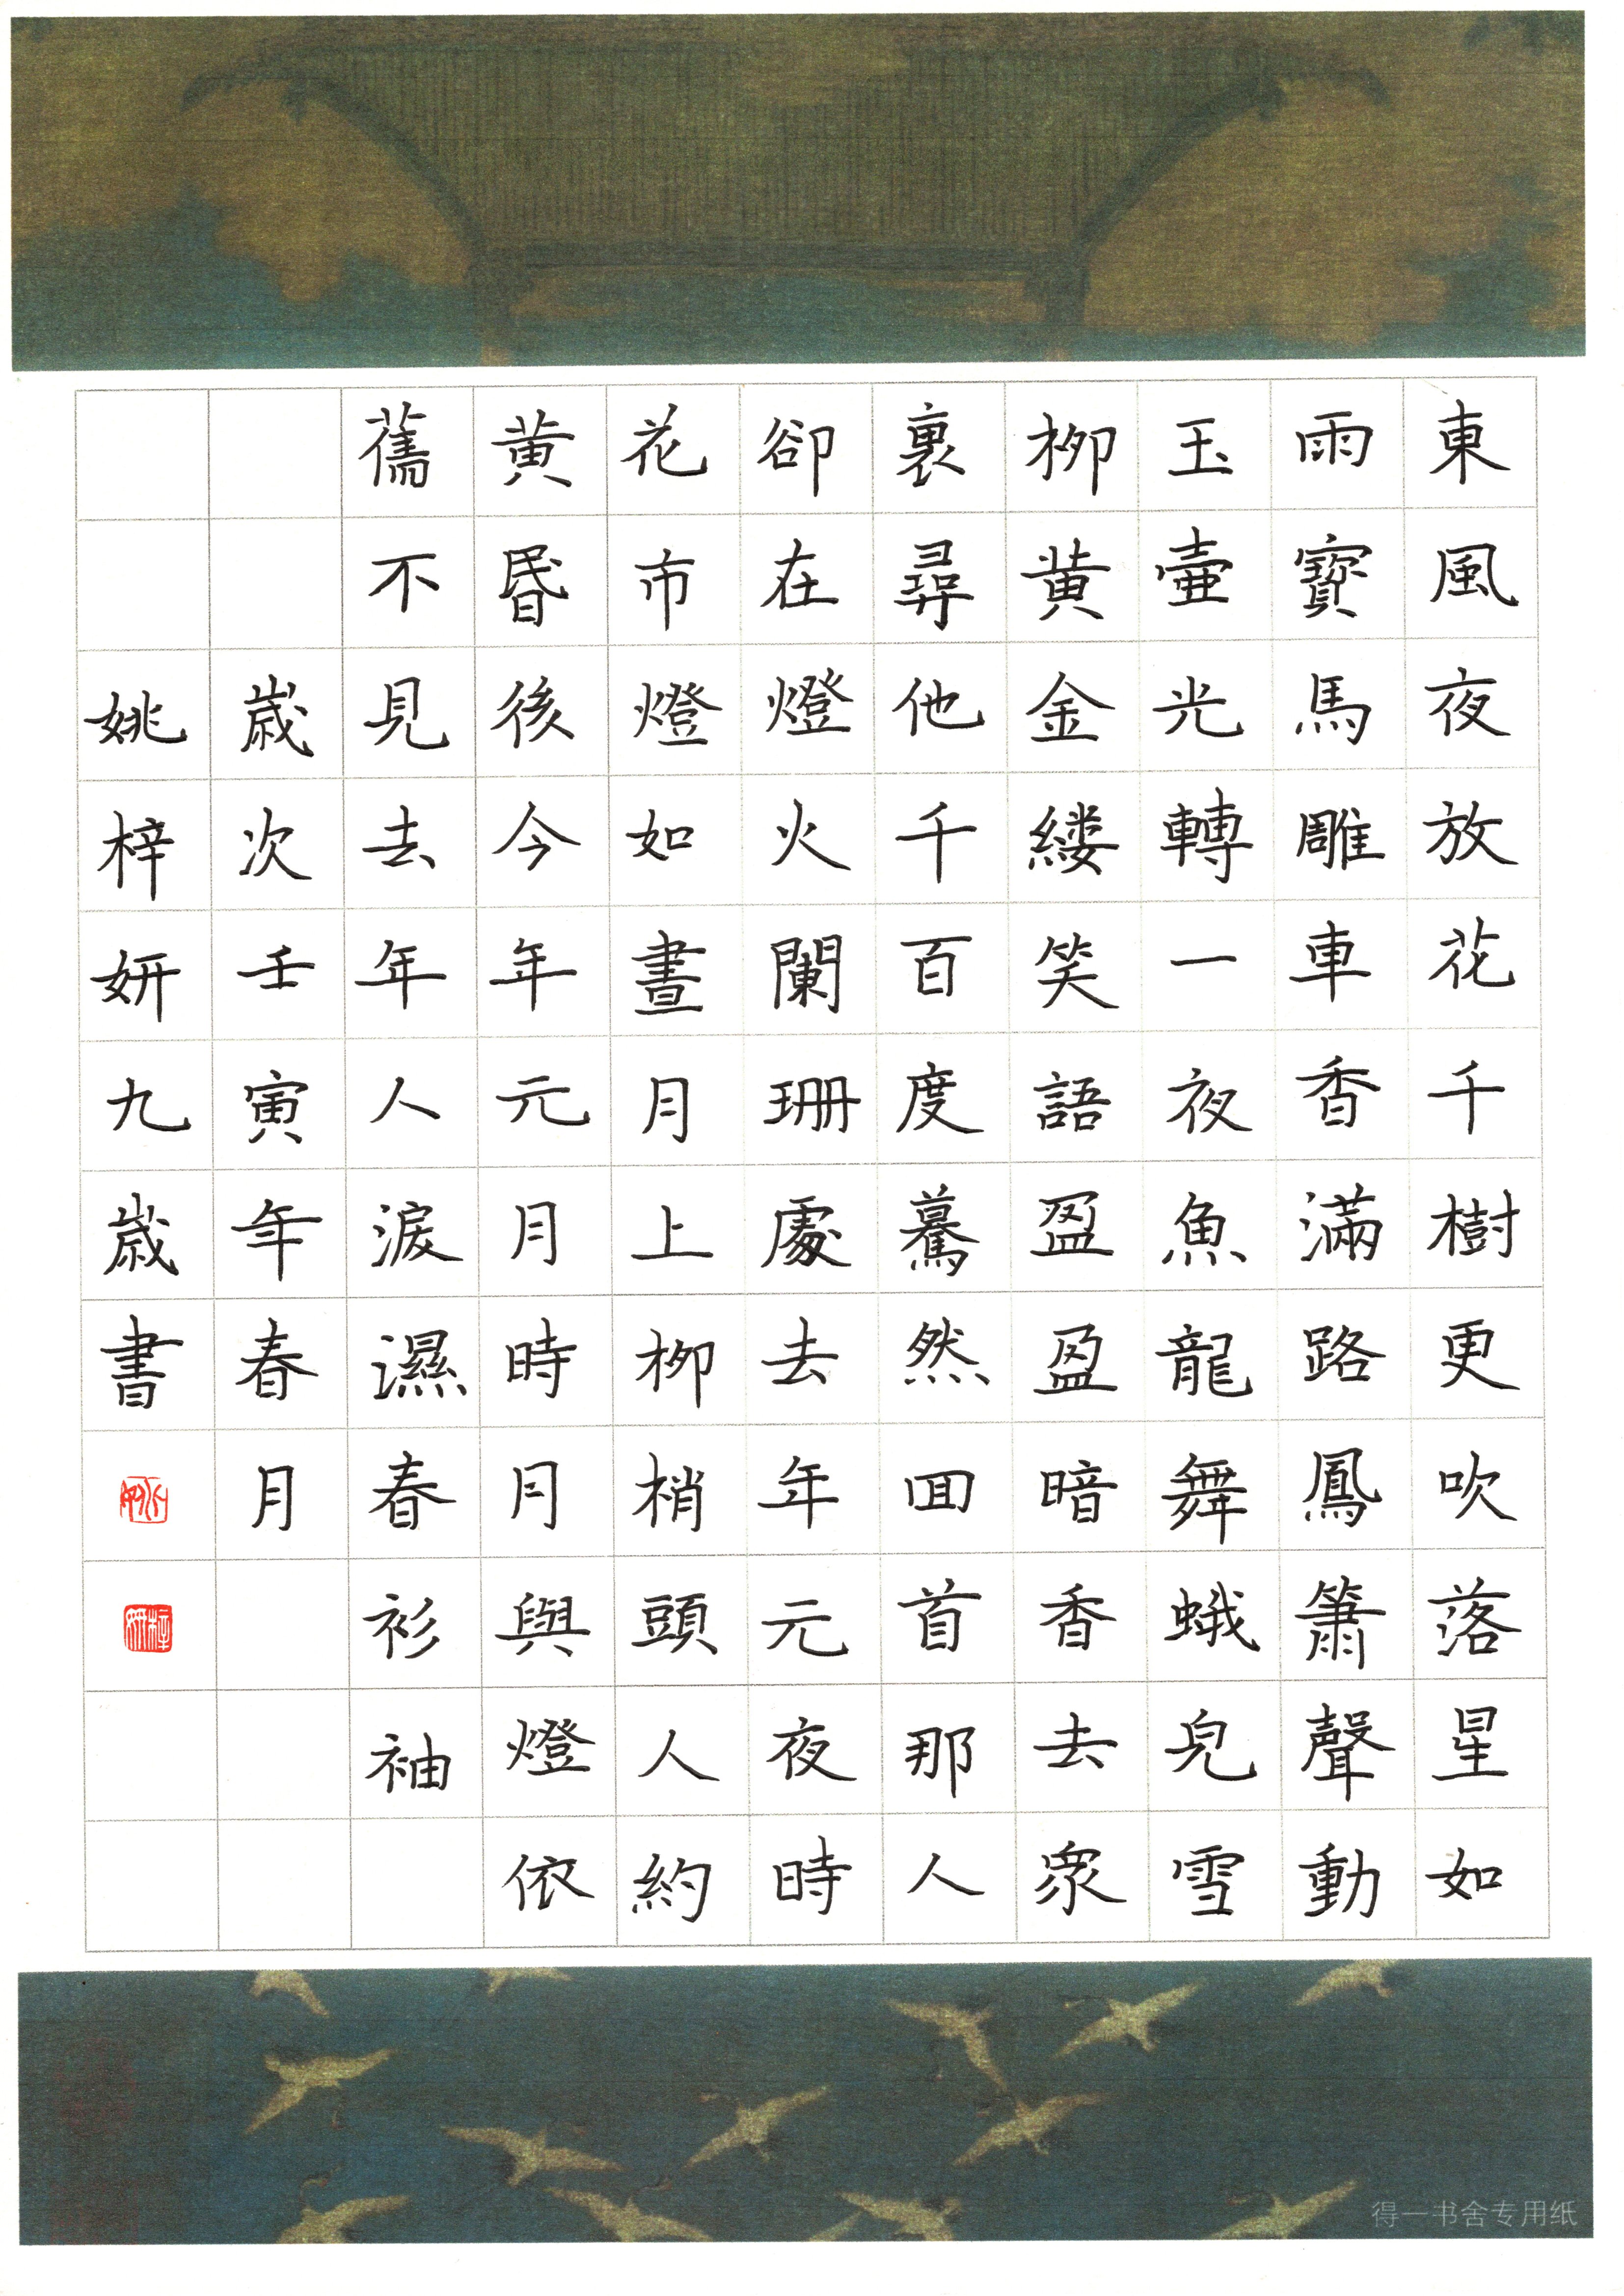 東風夜放花千樹更吹落星如
雨寶馬雕車香滿路鳳簫聲動
玉壷光轉一夜魚龍舞蛾皃雪
柳黄金縷笑語盈盈暗香去衆
裏尋他千百度驀然回首那人
卻在燈火闌珊處去年元夜時
花市燈如晝月上柳梢頭人約
黄昬後今年元月時月與燈依
舊不見去年人淚濕春衫袖
歲次壬寅年春月
姚梓妍九歲書
姚
梓妍
得一书舍专用纸